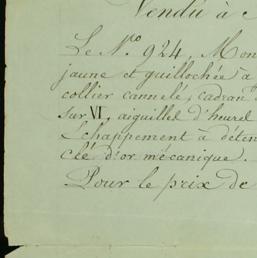 Vendu à
Le N.º 924, Mon
jaune et guillochée à
collier cannelé, cadran
sur VI, aiguilles d'heure
Echappement à déten
clé d'or mécanique.
Pour le prix de